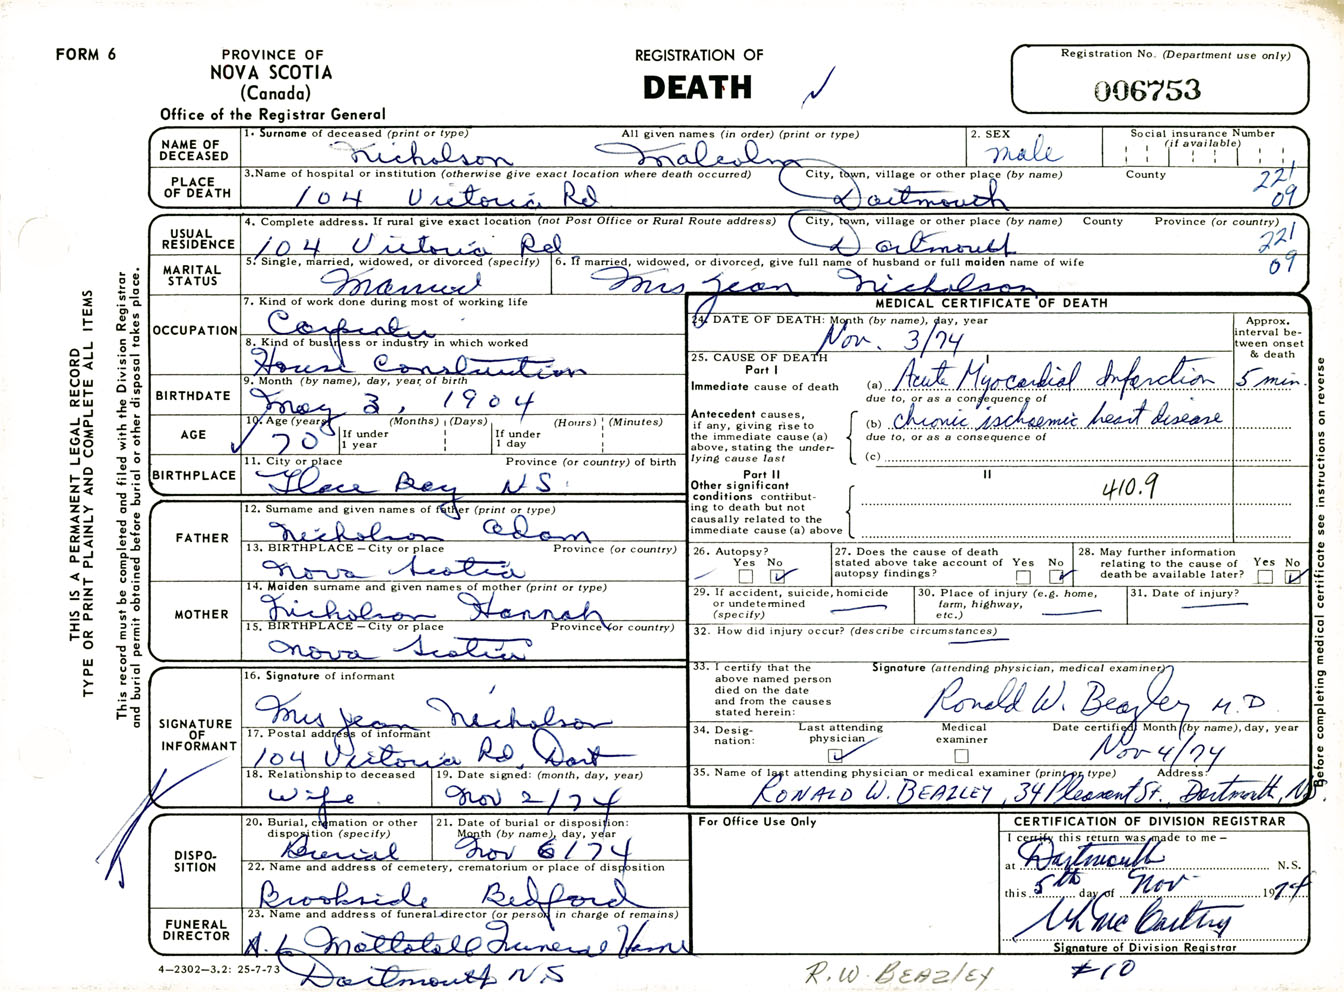 FORM 6
PROVINCE OF
NOVA SCOTIA
(Canada)
Office of the Registrar General
REGISTRATION OF
DEATH
Registration No. (Department use only)
006753
THIS IS A PERMANENT LEGAL RECORD
TYPE OR PRINT PLAINLY AND COMPLETE ALL ITEMS
This record must be completed and filed with the Division Registrar
and burial permit obtained before burial or other disposal takes place.
NAME OF DECEASED
1. Surname of deceased (print or type) All given names (in order) (print or type)
Nicholson Malcolm
2. SEX
male
Social insurance Number
(if available)
PLACE OF DEATH
3. Name of hospital or institution (otherwise give exact location where death occurred) City, town, village or other place (by name) County
104 Victoria Rd Dartmouth
221
09
USUAL RESIDENCE
4. Complete address. If rural give exact location (not Post Office or Rural Route address) City, town, village or other place (by name) County Province (or country)
104 Victoria Rd Dartmouth
221
09
MARITAL STATUS
5. Single, married, widowed, or divorced (specify)
Married
6. If married, widowed, or divorced, give full name of husband or full maiden name of wife
Mrs Jean Nicholson
OCCUPATION
7. Kind of work done during most of working life
Carpenter
8. Kind of business or industry in which worked
House Construction
BIRTHDATE
9. Month (by name), day, year of birth
May 3, 1904
AGE
10. Age (years) (Months) (Days) (Hours) (Minutes)
70 If under 1 year If under 1 day
BIRTHPLACE
11. City or place Province (or country) of birth
Glace Bay N S
FATHER
12. Surname and given names of father (print or type)
Nicholson Adam
13. BIRTHPLACE – City or place Province (or country)
Nova Scotia
MOTHER
14. Maiden surname and given names of mother (print or type)
Nicholson Hannah
15. BIRTHPLACE – City or place Province (or country)
Nova Scotia
SIGNATURE OF INFORMANT
16. Signature of informant
Mrs Jean Nicholson
17. Postal address of informant
104 Victoria Rd, Dart
18. Relationship to deceased
Wife
19. Date signed: (month, day, year)
Nov 2/74
DISPO-SITION
20. Burial, cremation or other disposition (specify)
Burial
21. Date of burial or disposition: Month (by name), day, year
Nov 6/74
22. Name and address of cemetery, crematorium or place of disposition
Brookside Bedford
FUNERAL DIRECTOR
23. Name and address of funeral director (or person in charge of remains)
A. L. Mattatall Funeral Home
Dartmouth N S
4–2302–3.2: 25-7-73
MEDICAL CERTIFICATE OF DEATH
24. DATE OF DEATH: Month (by name), day, year
Nov. 3/74
Approx. interval between onset & death
25. CAUSE OF DEATH
Part I
Immediate cause of death (a) Acute Myocardial Infarction 5 min.
due to, or as a consequence of
Antecedent causes, if any, giving rise to the immediate cause (a) above, stating the underlying cause last
(b) chronic ischaemic heart disease
due to, or as a consequence of
(c)
Part II II
Other significant conditions contributing to death but not causally related to the immediate cause (a) above
410.9
26. Autopsy? Yes No
27. Does the cause of death stated above take account of autopsy findings? Yes No
28. May further information relating to the cause of death be available later? Yes No
29. If accident, suicide, homicide or undetermined (specify)
30. Place of injury (e.g. home, farm, highway, etc.)
31. Date of injury?
32. How did injury occur? (describe circumstances)
33. I certify that the above named person died on the date and from the causes stated herein:
Signature (attending physician, medical examiner)
Ronald W. Beazley M.D.
34. Desig-nation: Last attending physician Medical examiner
Date certified Month (by name), day, year
Nov 4/74
35. Name of last attending physician or medical examiner (print or type) Address:
RONALD W. BEAZLEY, 34 Pleasant St. Dartmouth, NS.
Before completing medical certificate see instructions on reverse
For Office Use Only
CERTIFICATION OF DIVISION REGISTRAR
I certify this return was made to me –
at Dartmouth N.S.
this 5th day of Nov 1974
Signature of Division Registrar
R.W. BEAZLEY
#10